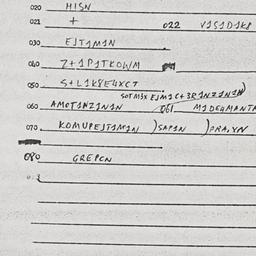 020 HISN
021 + 022 V1S1D1K8
030 EJT1M1N
040 Z+1P1TKOWM
050 S+L1K8E4XCT
SOTM3X EJM1C+3R1NZ1N1N)
060 AMOT1NZ1N1N 061 M1DEHMANTA
070 KOMUPEJT1M1N )SAP1N )ORA,XN
080 GREPCN